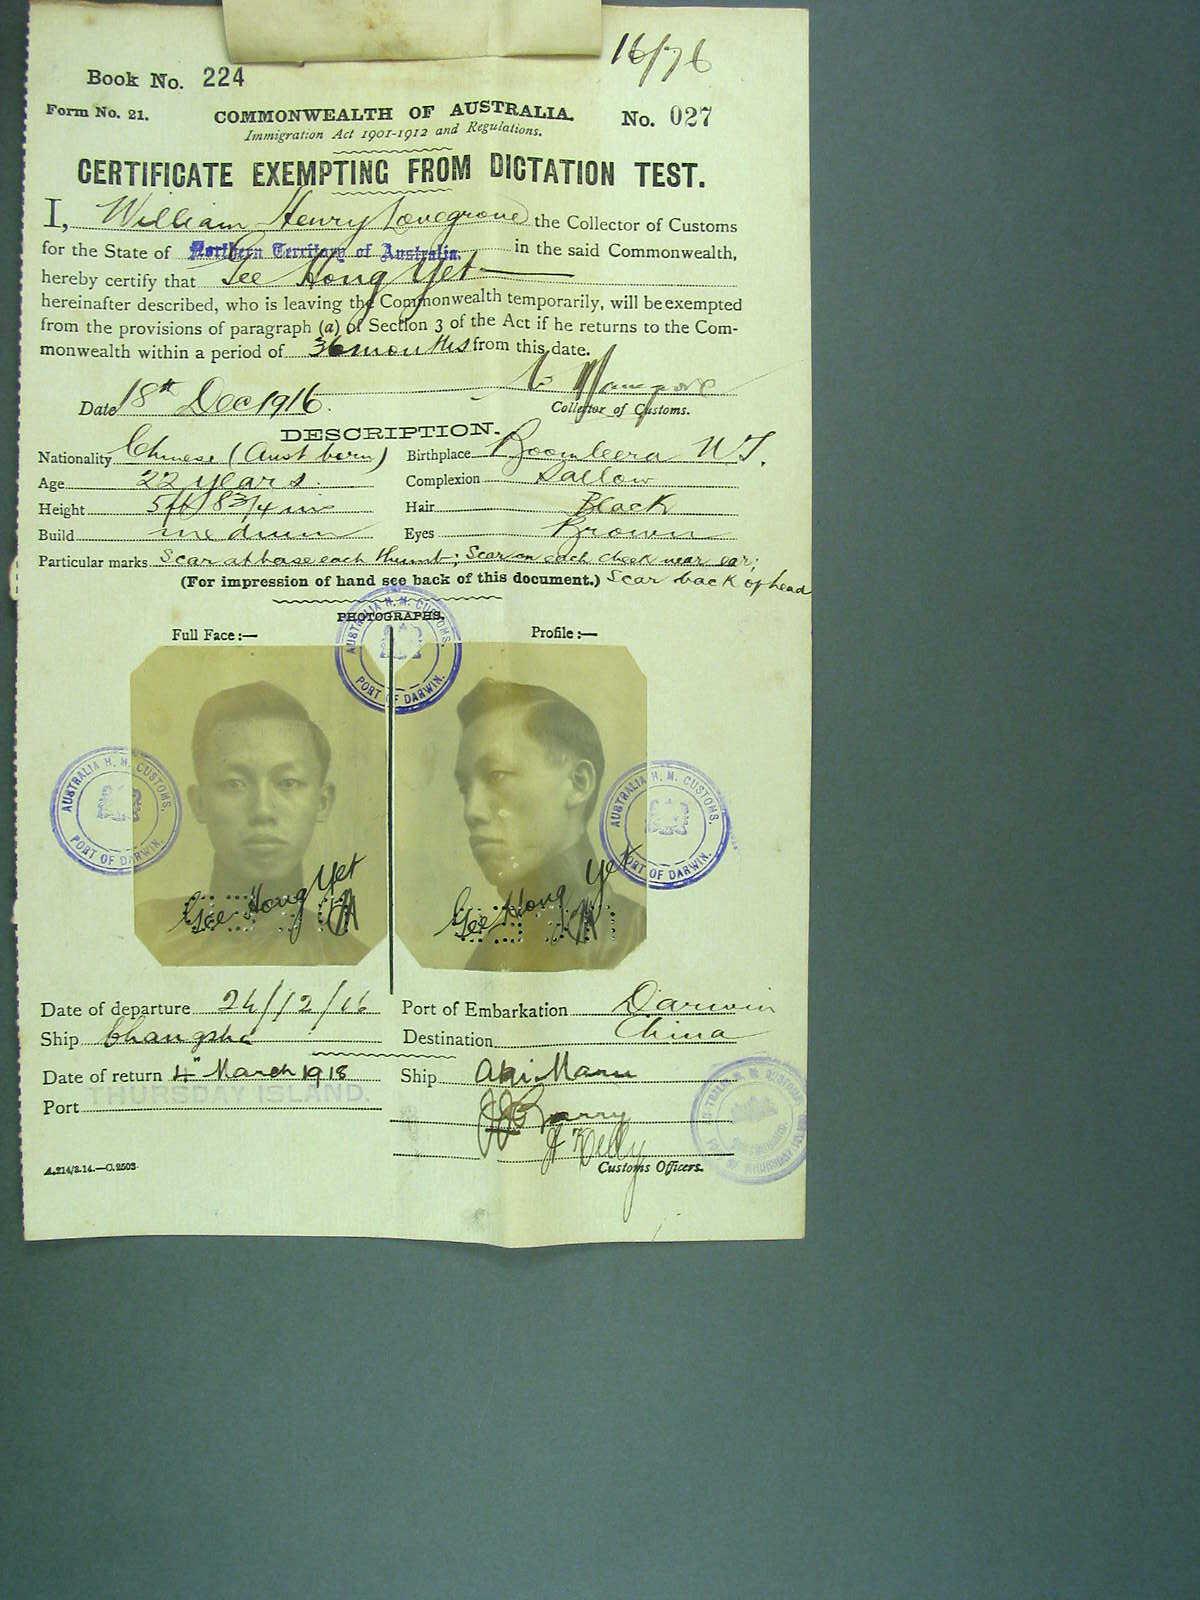 16/76
Book No. 224
Form No. 21.
COMMONWEALTH OF AUSTRALIA.
No. 027
Immigration Act 1901-1912 and Regulations.
CERTIFICATE EXEMPTING FROM DICTATION TEST.
I, William Henry Lovegrove the Collector of Customs
for the State of Northern Territory of Australia. in the said Commonwealth,
hereby certify that Gee Hong Yet
hereinafter described, who is leaving the Commonwealth temporarily, will be exempted
from the provisions of paragraph (a) of Section 3 of the Act if he returns to the Com-
monwealth within a period of 36 months from this date.
Date 18th Dec 1916.
Collector of Customs.
DESCRIPTION.
Nationality Chinese (Aust born) Birthplace Boomleera N.T.
Age 22 years. Complexion Sallow
Height 5 ft 8 3/4 ins Hair Black
Build medium Eyes Brown
Particular marks Scar at base each thumb; Scar on each cheek near ear;
(For impression of hand see back of this document.) Scar back of head
PHOTOGRAPHS.
Full Face:— Profile:—
AUSTRALIA H. M. CUSTOMS. PORT OF DARWIN.
AUSTRALIA H. M. CUSTOMS. PORT OF DARWIN.
AUSTRALIA H. M. CUSTOMS. PORT OF DARWIN.
Gee Hong Yet
Gee Hong Yet
Date of departure 24/12/16 Port of Embarkation Darwin
Ship Changsha Destination China
Date of return 4" March 1918 Ship Aki Maru
Port THURSDAY ISLAND.
JJ Barry
Customs Officers.
A.214/3.14.—C.2503